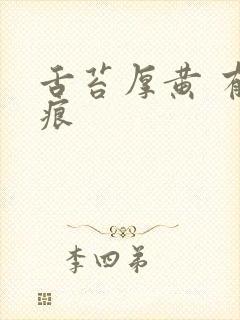 舌苔厚黄 有
痕
李四弟